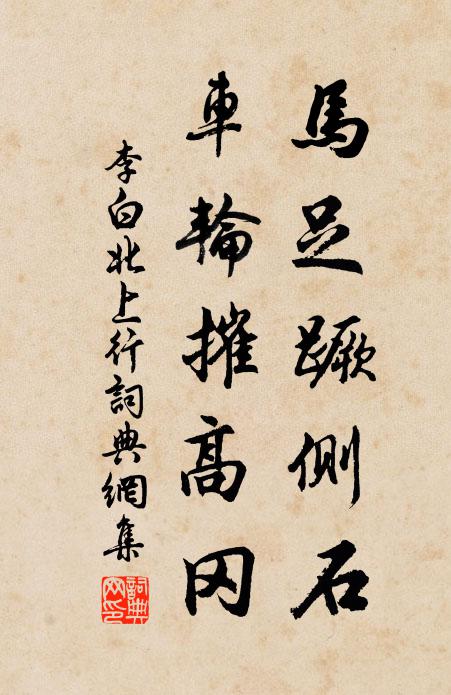 馬足蹶側石
車輪摧高冈
李白北上行詞典網集
詞典网印